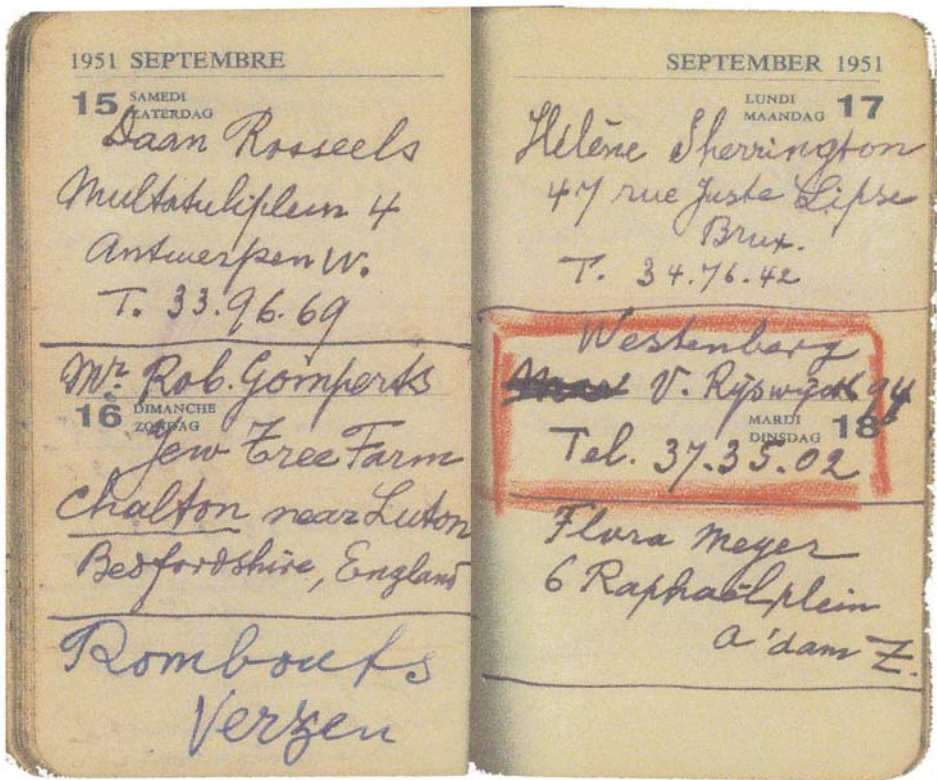 1951 SEPTEMBRE
15 SAMEDI
ZATERDAG
Daan Rosseels
Multatuliplein 4
Antwerpen W.
T. 33.96.69
Mr Rob. Gomperts
16 DIMANCHE
ZONDAG
Yew Tree Farm
Chalton near Luton
Bedfordshire, England
Rombouts
Verzen
SEPTEMBER 1951
LUNDI
MAANDAG 17
Hélène Sherrington
47 rue Juste Lipse
Brux.
T. 34.76.42
Westenberg
V. Rijswijck 94
MARDI
DINSDAG 18
Tel. 37.35.02
Flora Meyer
6 Raphaëlplein
A'dam Z.